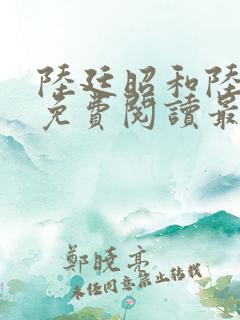 陸廷昭和陸
免費閱讀最
鄭曉亮
未經同意禁止轉載